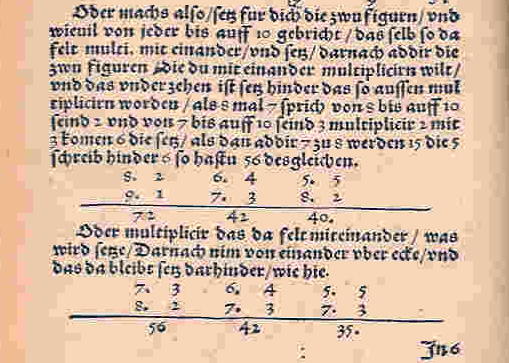 Oder machs also/setz fur dich die zwu figurn/vnd
wieuil von jeder bis auff 10 gebricht/das selb so da
felt multi. mit einander/vnd setz/darnach addir die
zwu figuren die du mit einander multiplicirn wilt/
vnd das vnder zehen ist setz hinder das so aussen mul
tiplicirn worden/als 8 mal 7 sprich von 8 bis auff 10
seind 2 vnd von 7 bis auff 10 seind 3 multiplicir 2 mit
3 komen 6 die setz/als dan addir 7 zu 8 werden 15 die 5
schreib hinder 6 so hastu 56 desgleichen.
8. 2 6. 4 5. 5
9. 1 7. 3 8. 2
72 42 40.
Oder multiplicir das da felt miteinander/was
wird setze/Darnach nim von einander vber ecke/vnd
das da bleibt setz darhinder/wie hie.
7. 3 6. 4 5. 5
8. 2 7. 3 7. 3
56 42 35.
In 6